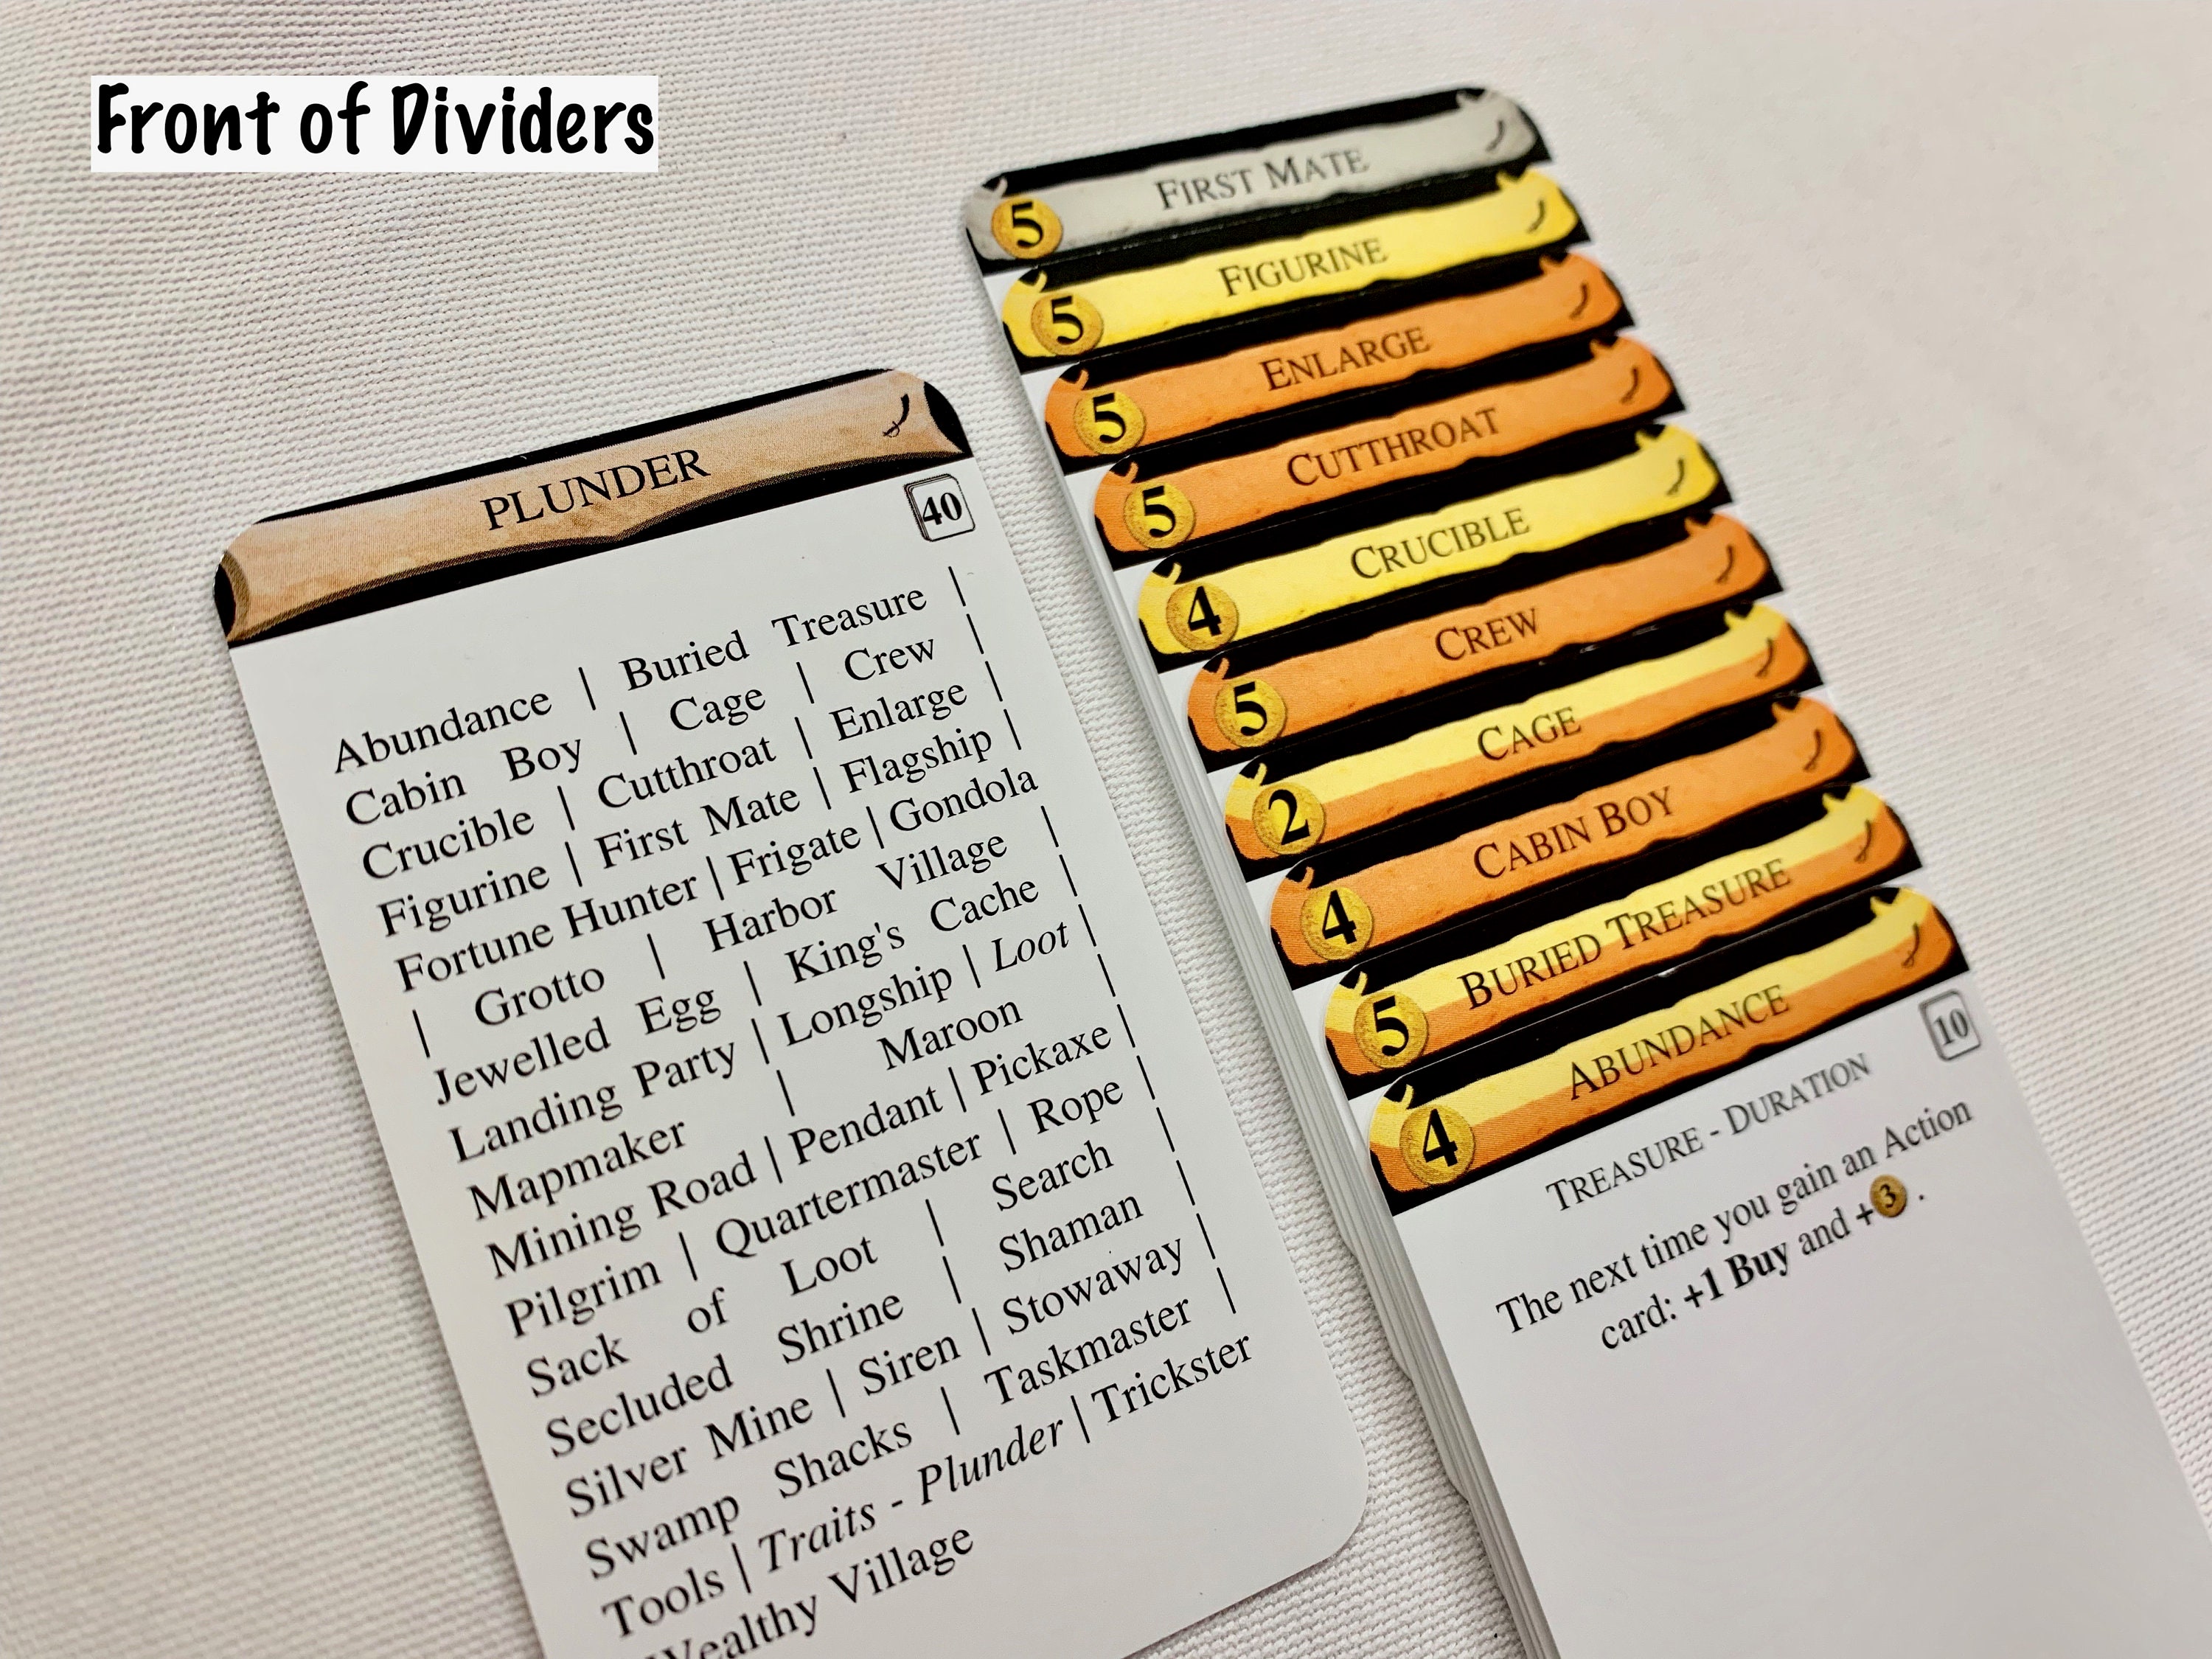 Front of Dividers
PLUNDER
40
Abundance | Buried Treasure |
Cabin Boy | Cage | Crew |
Crucible | Cutthroat | Enlarge |
Figurine | First Mate | Flagship |
Fortune Hunter | Frigate | Gondola
| Grotto | Harbor Village |
Jewelled Egg | King's Cache |
Landing Party | Longship | Loot |
Mapmaker | Maroon |
Mining Road | Pendant | Pickaxe |
Pilgrim | Quartermaster | Rope |
Sack of Loot | Search |
Secluded Shrine | Shaman |
Silver Mine | Siren | Stowaway |
Swamp Shacks | Taskmaster |
Tools | Traits - Plunder | Trickster
Wealthy Village
FIRST MATE
5
FIGURINE
5
ENLARGE
5
CUTTHROAT
5
CRUCIBLE
4
CREW
5
CAGE
2
CABIN BOY
4
BURIED TREASURE
5
ABUNDANCE
4
10
TREASURE - DURATION
The next time you gain an Action
card: +1 Buy and +3 .